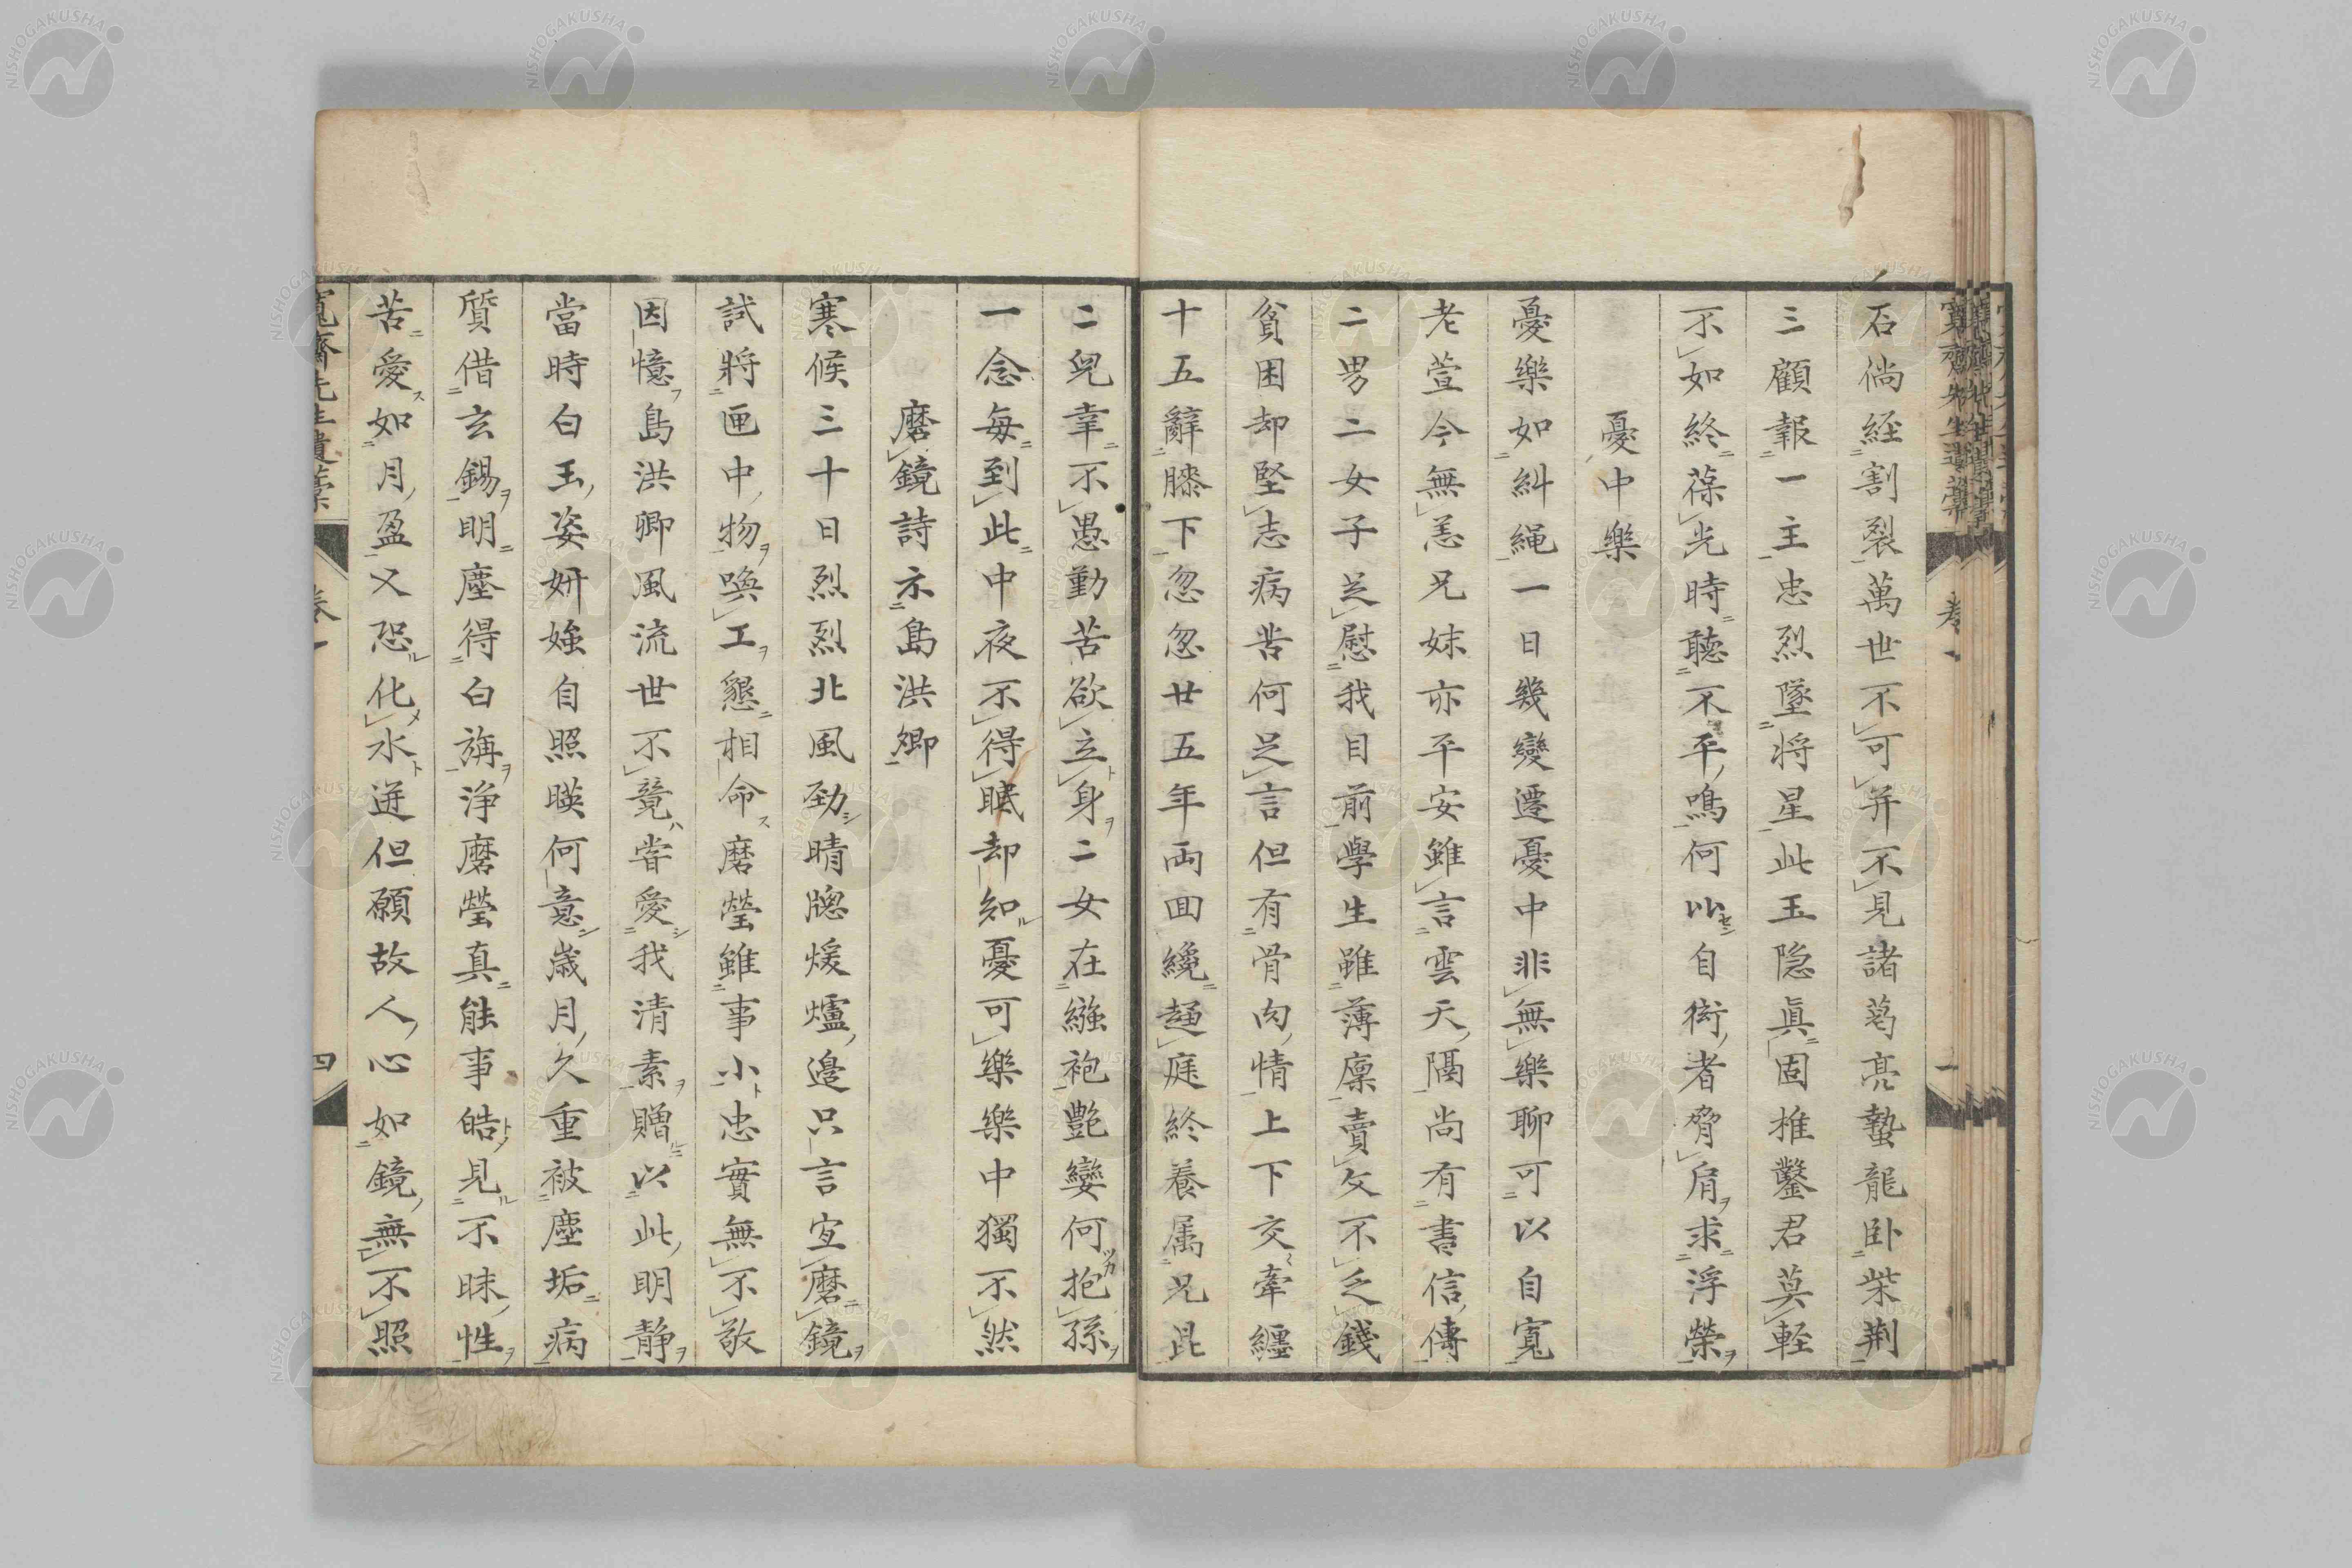 石倘經割裂萬世不可并不見諸葛亮蟄龍卧柴荆
三顧報一主忠烈墜将星此玉隐眞固推鑿君莫軽
不如終葆光時聴不平鳴何以自衒者脅肩求浮榮
憂中樂
憂樂如糾繩一日幾變遷憂中非無樂聊可以自寬
老萱今無恙兄妹亦平安雖言雲天隔尚有書信傳
二男二女子芝慰我目前學生雖薄廩賣文不乏錢
貧困却堅志病苦何足言但有骨肉情上下交牽纏
十五辭膝下忽忽廿五年両回纔趨庭終養属兄昆
二兒幸不愚勤苦欲立身二女在繈袍艶孌何抱孫
一念每到此中夜不得眠却知憂可樂樂中獨不然
磨鏡詩示島洪卿
寒候三十日烈烈北風勁晴牕煖爐邊只言宜磨鏡
試將匣中物喚工懇相命磨瑩雖事小忠實無不敬
因憶島洪卿風流世不競甞愛我清素贈以此明静
當時白玉姿妍媸自照暎何意歳月久重被塵垢病
質借玄錫明塵得白旃浄磨瑩真能事皓見不昧性
苦愛如月盈又恐化水迸但願故人心如鏡無不照
寬齋先生遺稾
卷一
四
NISHOGAKUSHA